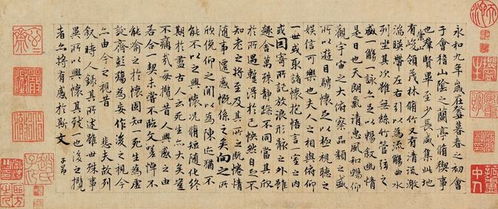 永和九年歲在癸丑暮春之初會
于會稽山陰之蘭亭脩稧事
也群賢畢至少長咸集此地
有峻領茂林脩竹又有清流激
湍暎帶左右引以為流觴曲水
列坐其次雖無絲竹管弦之
盛一觴一詠亦足以暢敘幽情
是日也天朗氣清惠風和暢仰
觀宇宙之大俯察品類之盛
所以遊目騁懷足以極視聽之
娛信可樂也夫人之相與俯仰
一世或取諸懷抱悟言一室之內
或因寄所託放浪形骸之外雖
趣舍萬殊靜躁不同當其欣
於所遇蹔得於己怏然自足不
知老之將至及其所之既惓情
隨事遷感慨係之矣向之所
欣俛仰之間以為陳迹猶不
能不以之興懷況脩短隨化終
期於盡古人云死生亦大矣豈
不痛哉每攬昔人興感之由
若合一契未嘗不臨文嗟悼不
能喻之於懷固知一死生為虛
誕齊彭殤為妄作後之視今
亦由今之視昔悲夫故列
敘時人錄其所述雖世殊事
異所以興懷其致一也後之攬
者亦將有感於斯文
子昂